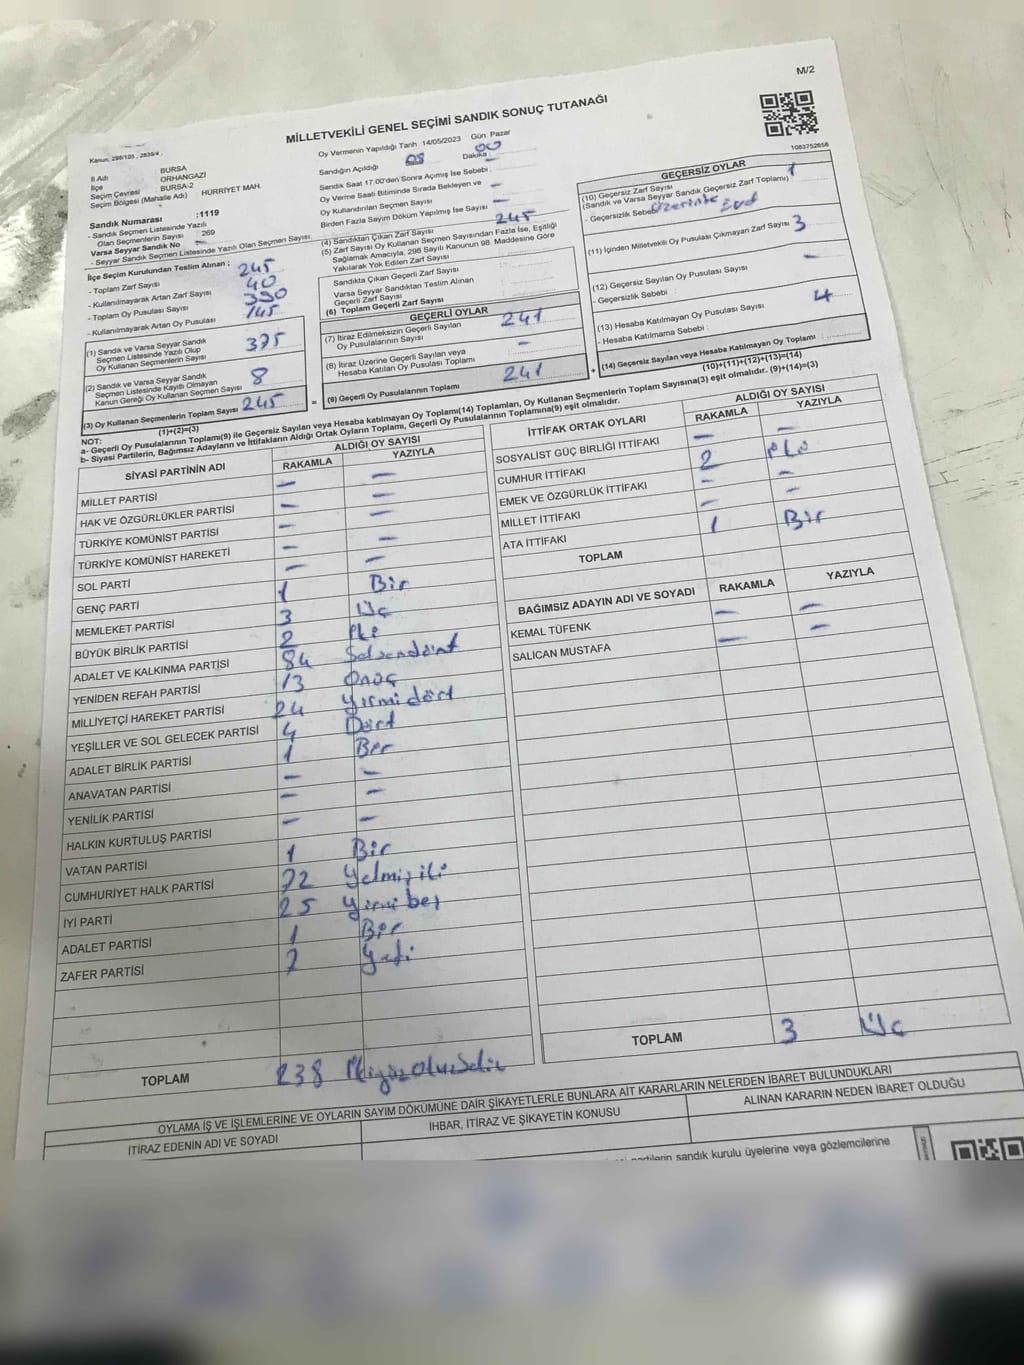 M/2
MİLLETVEKİLİ GENEL SEÇİMİ SANDIK SONUÇ TUTANAĞI
1083752658
İl Adı : BURSA
İlçe : ORHANGAZI
Seçim Çevresi : BURSA-2
Seçim Bölgesi (Mahalle Adı) : HÜRRİYET MAH.
Sandık Numarası :1119
- Sandık Seçmen Listesinde Yazılı
Olan Seçmenlerin Sayısı : 269
Varsa Seyyar Sandık No
- Seyyar Sandık Seçmen Listesinde Yazılı Olan Seçmen Sayısı:
İlçe Seçim Kurulundan Teslim Alınan :
- Toplam Zarf Sayısı
- Kullanılmayarak Artan Zarf Sayısı 40
- Toplam Oy Pusulası Sayısı
- Kullanılmayarak Artan Oy Pusulası
(1) Sandık ve Varsa Seyyar Sandık
Seçmen Listesinde Yazılı Olup
Oy Kullanan Seçmenlerin Sayısı
(2) Sandık ve Varsa Seyyar Sandık
Seçmen Listesinde Kayıtlı Olmayan
Kanun Gereği Oy Kullanan Seçmen Sayısı 8
(3) Oy Kullanan Seçmenlerin Toplam Sayısı 245
(1)+(2)=(3)
Oy Vermenin Yapıldığı Tarih 14/05/2023 Gün: Pazar
Sandığın Açıldığı 08 Dakika : 00
Sandık Saat 17:00'den Sonra Açılmış İse Sebebi :
Oy Verme Saati Bitiminde Sırada Bekleyen ve
Oy Kullandırılan Seçmen Sayısı –
Birden Fazla Sayım Döküm Yapılmış İse Sayısı –
(4) Sandıktan Çıkan Zarf Sayısı 245
(5) Zarf Sayısı Oy Kullanan Seçmen Sayısından Fazla İse, Eşitliği
Sağlamak Amacıyla, 298 Sayılı Kanunun 98. Maddesine Göre
Yakılarak Yok Edilen Zarf Sayısı
Sandıkta Çıkan Geçerli Zarf Sayısı
Varsa Seyyar Sandıktan Teslim Alınan
Geçerli Zarf Sayısı
(6) Toplam Geçerli Zarf Sayısı
GEÇERLİ OYLAR
(7) İtiraz Edilmeksizin Geçerli Sayılan
Oy Pusulalarının Sayısı 241
(8) İtiraz Üzerine Geçerli Sayılan veya
Hesaba Katılan Oy Pusulası Toplamı –
(9) Geçerli Oy Pusulalarının Toplamı 241
GEÇERSİZ OYLAR
(10) Geçersiz Zarf Sayısı
(Sandık ve Varsa Seyyar Sandık Geçersiz Zarf Toplamı) 1
- Geçersizlik Sebebi : Üzerinde
(11) İçinden Milletvekili Oy Pusulası Çıkmayan Zarf Sayısı 3
(12) Geçersiz Sayılan Oy Pusulası Sayısı –
- Geçersizlik Sebebi :
(13) Hesaba Katılmayan Oy Pusulası Sayısı 4
- Hesaba Katılmama Sebebi :
(14) Geçersiz Sayılan veya Hesaba Katılmayan Oy Toplamı :
(10)+(11)+(12)+(13)=(14)
NOT:
a- Geçerli Oy Pusulalarının Toplamı(9) ile Geçersiz Sayılan veya Hesaba katılmayan Oy Toplamı(14) Toplamları, Oy Kullanan Seçmenlerin Toplam Sayısına(3) eşit olmalıdır. (9)+(14)=(3)
b- Siyasi Partilerin, Bağımsız Adayların ve İttifakların Aldığı Ortak Oyların Toplamı, Geçerli Oy Pusulalarının Toplamına(9) eşit olmalıdır.
SİYASİ PARTİNİN ADI ALDIĞI OY SAYISI
RAKAMLA YAZIYLA
MİLLET PARTİSİ – –
HAK VE ÖZGÜRLÜKLER PARTİSİ – –
TÜRKİYE KOMÜNİST PARTİSİ – –
TÜRKİYE KOMÜNİST HAREKETİ – –
SOL PARTİ – –
GENÇ PARTİ 1 Bir
MEMLEKET PARTİSİ 3 Üç
BÜYÜK BİRLİK PARTİSİ 2 İki
ADALET VE KALKINMA PARTİSİ 84 Seksendört
YENİDEN REFAH PARTİSİ 13 Onüç
MİLLİYETÇİ HAREKET PARTİSİ 24 Yirmidört
YEŞİLLER VE SOL GELECEK PARTİSİ 4 Dört
ADALET BİRLİK PARTİSİ 1 Bir
ANAVATAN PARTİSİ – –
YENİLİK PARTİSİ – –
HALKIN KURTULUŞ PARTİSİ – –
VATAN PARTİSİ 1 Bir
CUMHURİYET HALK PARTİSİ 72 Yetmişiki
İYİ PARTİ 25 Yirmibeş
ADALET PARTİSİ 1 Bir
ZAFER PARTİSİ 7 Yedi
TOPLAM 238
İTTİFAK ORTAK OYLARI ALDIĞI OY SAYISI
RAKAMLA YAZIYLA
SOSYALİST GÜÇ BİRLİĞİ İTTİFAKI – –
CUMHUR İTTİFAKI 2 İki
EMEK VE ÖZGÜRLÜK İTTİFAKI – –
MİLLET İTTİFAKI – –
ATA İTTİFAKI 1 Bir
TOPLAM
BAĞIMSIZ ADAYIN ADI VE SOYADI RAKAMLA YAZIYLA
KEMAL TÜFENK – –
SALICAN MUSTAFA – –
TOPLAM 3 Üç
OYLAMA İŞ VE İŞLEMLERİNE VE OYLARIN SAYIM DÖKÜMÜNE DAİR ŞİKAYETLERLE BUNLARA AİT KARARLARIN NELERDEN İBARET BULUNDUKLARI
İTİRAZ EDENİN ADI VE SOYADI İHBAR, İTİRAZ VE ŞİKAYETİN KONUSU ALINAN KARARIN NEDEN İBARET OLDUĞU
partilerin sandık kurulu üyelerine veya gözlemcilerine